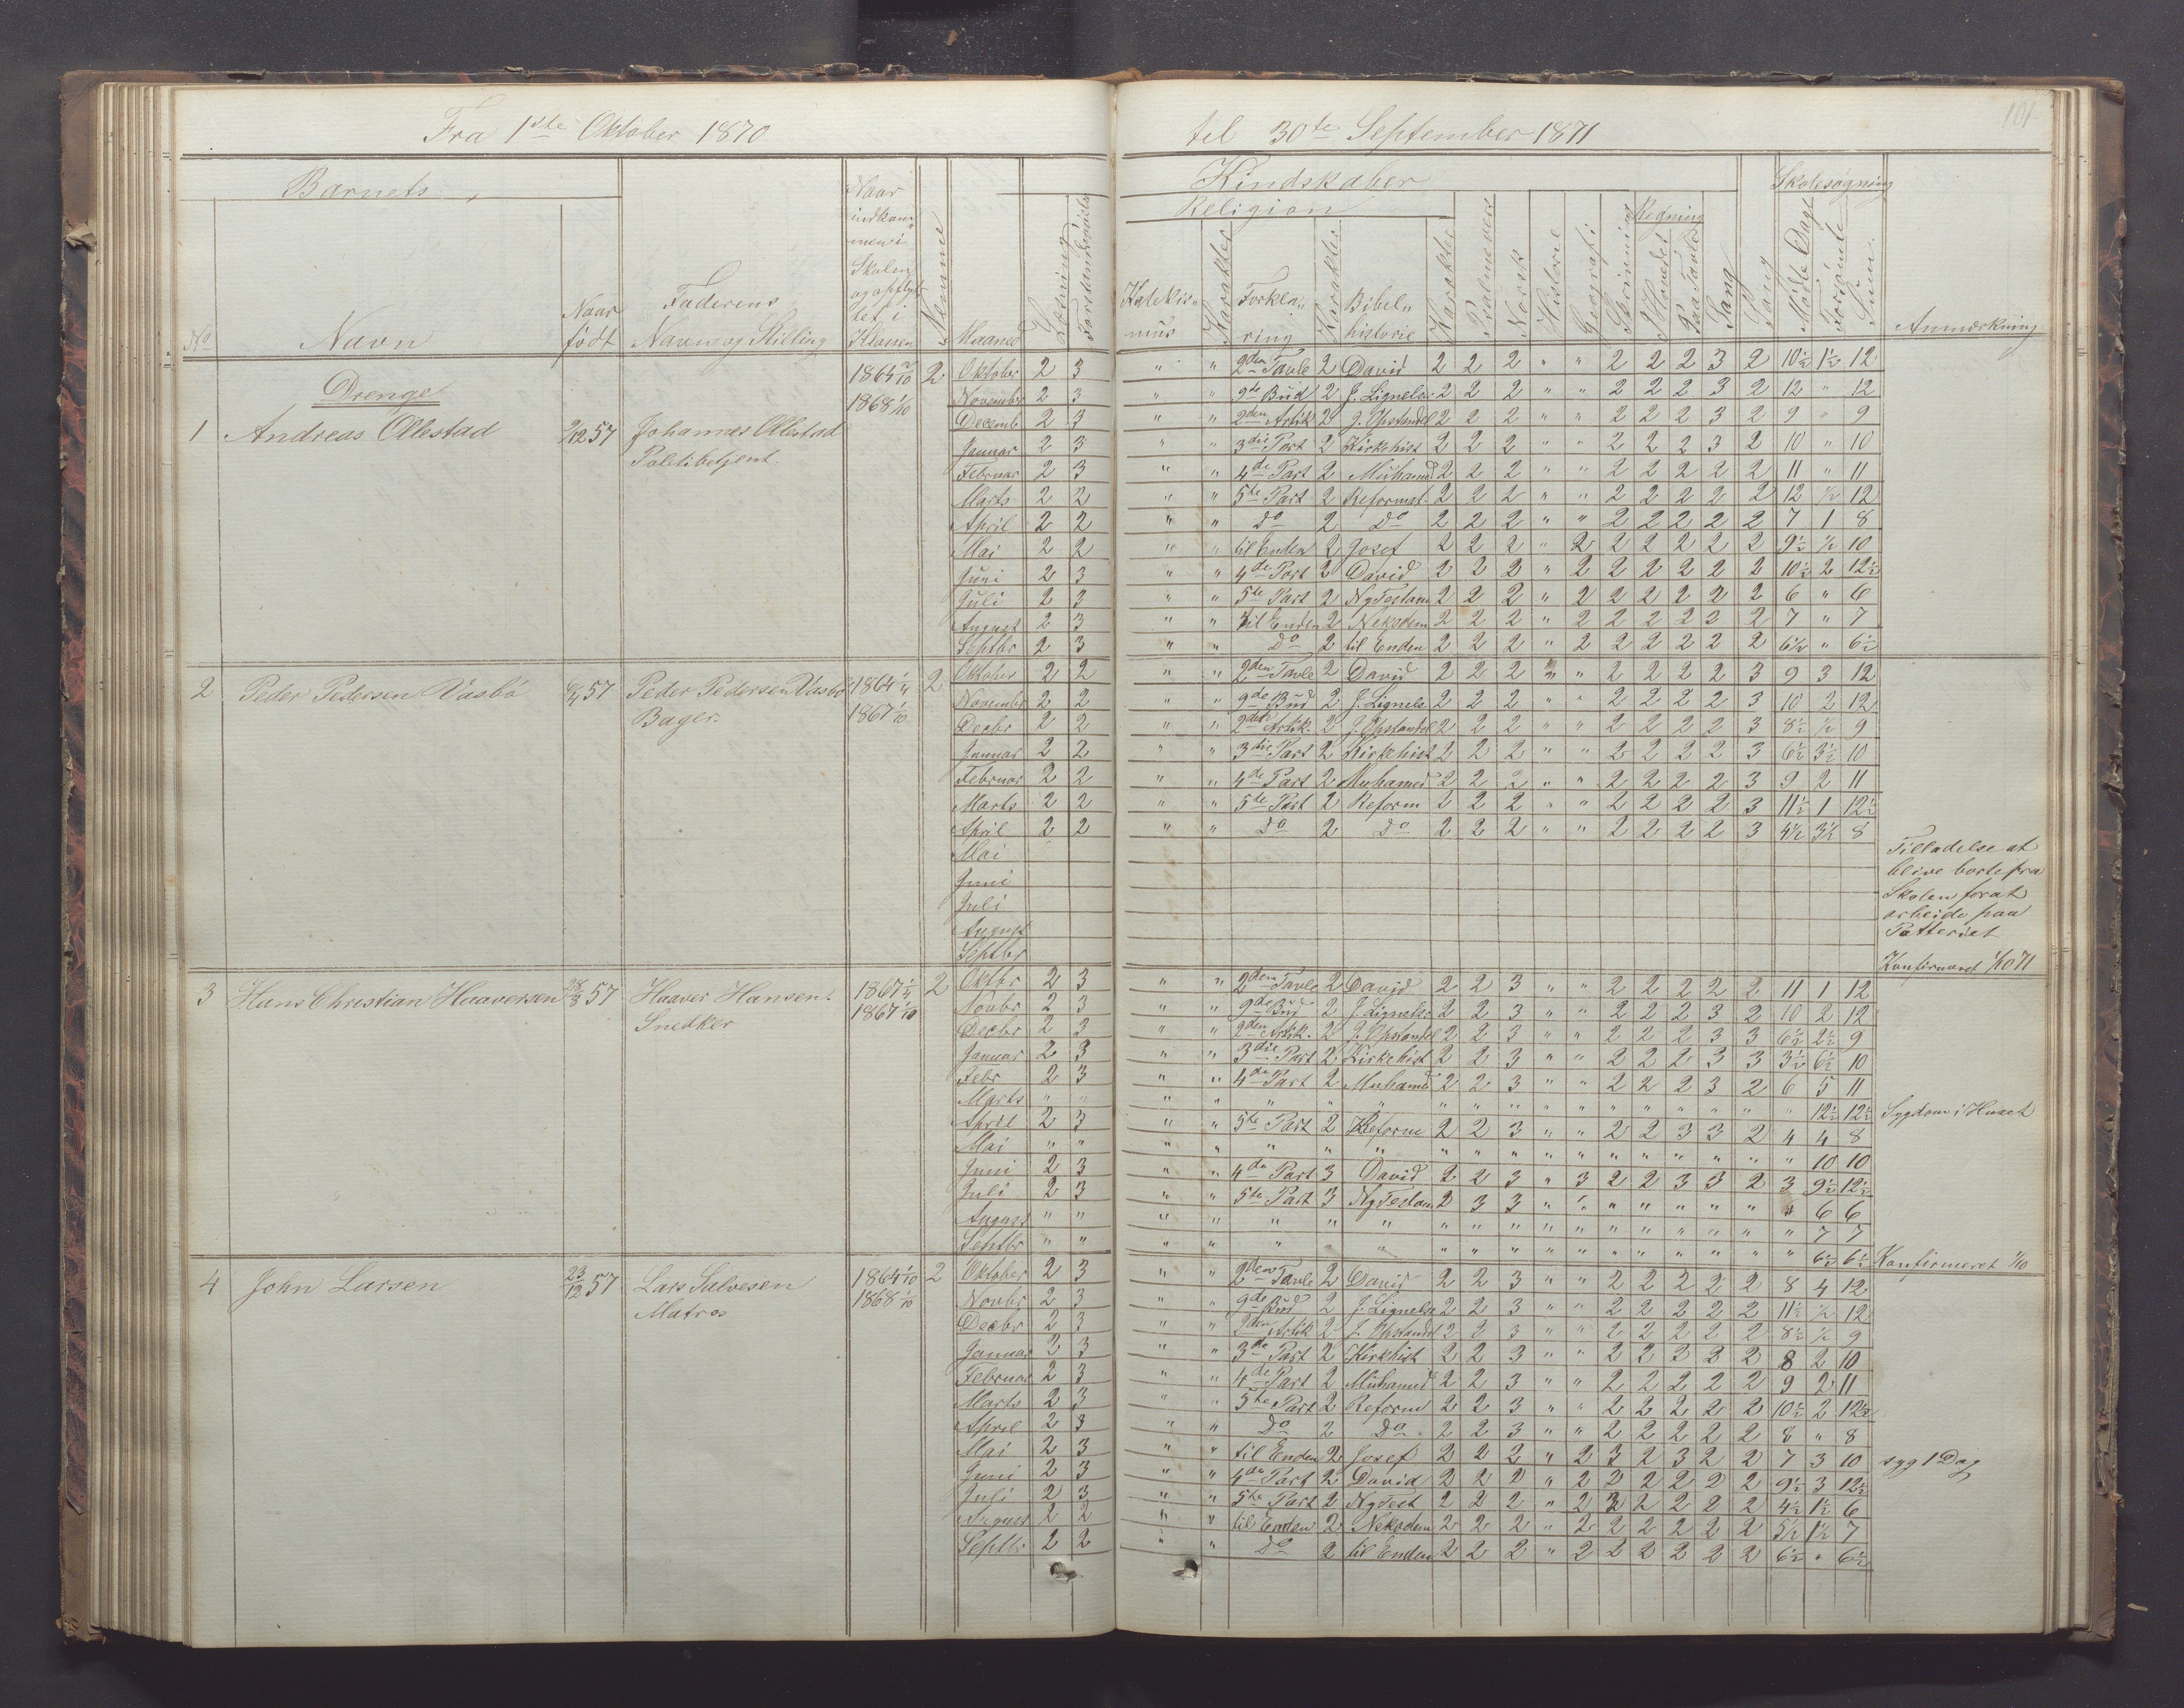 Fra 1ste Oktober 1870 til 30te September 1871
101.
Barnets
No
Navn
Naar født
Faderens Navn og Stilling
Naar indkommen i Skolen og opflyttet i Klassen
Nemme
Maaned
Læsning
Forstandsøvelse
Kundskaber
Religion
Katekismus
Karakter
Forklaring
Karakter
Bibelhistorie
Karakter
Psalmevers
Norsk
Historie
Geografi
Skrivning
Regning
I Hovedet
Paa Tavle
Sang
Skolesøgning
Mødte Dage
Forsømte
Sum
Anmærkning
Drenge
1 Andreas Ollestad 57 Johannes Ollestad Politibetjent. 1864 1868 1/10 2
Oktober 2 3 " " 2den Tavle 2 David 2 2 2 " " 2 2 2 3 2 10½ 1½ 12
November 2 3 " " 9de Bud 2 J. Lignelser 2 2 2 " " 2 2 2 3 2 12 " 12
Decemb 2 3 " " 2den Artik 2 J. Opstandel 2 2 2 " " 2 2 2 3 2 9 " 9
Januar 2 3 " " 3die Part 2 Kirkehist 2 2 2 " " 2 2 2 3 2 10 " 10
Februar 2 3 " " 4de Part 2 Muhamed 2 2 2 " " 2 2 2 2 2 11 " 11
Marts 2 2 " " 5te Part 2 Reformat. 2 2 2 " " 2 2 2 2 2 12 ½ 12
April 2 2 " " Do 2 Do 2 2 2 " " 2 2 2 2 2 7 1 8
Mai 2 2 " " til Enden 2 Josef 2 2 2 " 2 2 2 2 2 2 9½ ½ 10
Juni 2 3 " " 4de Part 2 David 2 2 2 " 2 2 2 2 2 2 10½ 2 12½
Juli 2 3 " " 5te Part 2 Ny Testam 2 2 2 " 2 2 2 2 2 2 6 " 6
August 2 3 " " til Enden 2 Nekodem 2 2 2 " 2 2 2 2 2 2 7 " 7
Septbr 2 3 " " Do 2 til Enden 2 2 2 " 2 2 2 2 2 2 6½ " 6½
2 Peder Pedersen Vasbø 57 Peder Pedersen Vasbø Bager. 1864 1867 1/10 2
Oktober 2 2 " " 2den Tavle 2 David 2 2 2 " " 2 2 2 2 3 9 3 12
Novembr 2 2 " " 9de Bud 2 J. Lignels 2 2 2 " " 2 2 2 2 3 10 2 12
Decbr 2 2 " " 2den Artik. 2 J. Opstandel 2 2 2 " " 2 2 2 2 3 8½ ½ 9
Januar 2 2 " " 3die Part 2 Kirkehist 2 2 2 " " 2 2 2 2 3 6½ 3½ 10
Februar 2 2 " " 4de Part 2 Muhamed 2 2 2 " " 2 2 2 2 3 9 2 11
Marts 2 2 " " 5te Part 2 Reform 2 2 2 " " 2 2 2 2 3 11½ 1 12½
April 2 2 " " Do 2 Do 2 2 2 " " 2 2 2 2 3 4½ 3½ 8
Mai
Juni
Juli
August
Septbr
Tilladelse at
blive borte fra
Skolen forat
arbeide paa
Potteriet
Konfirmeret 1/10 71
3 Hans Christian Haaversen 28/3 57 Haaver Hansen. Snedker 1867 1867 1/10 2
Oktbr 2 3 " " 2den Tavle 2 David 2 2 3 " " 2 2 2 2 2 11 1 12
Novbr 2 3 " " 9de Bud 2 J. Lignels 2 2 3 " " 2 2 2 3 2 10 2 12
Decbr 2 3 " " 2den Artik. 2 J. Opstandel 2 2 3 " " 2 2 2 3 3 6½ 2½ 9
Januar 2 3 " " 3die Part 2 Kirkehist 2 2 3 " " 2 2 2 3 3 3½ 6½ 10
Febr 2 3 " " 4de Part 2 Muhamed 2 2 3 " " 2 2 2 3 2 6 5 11
Marts " " " " " " " " " " " " " " " " " " 12½ 12½ Sygdom i Huset
April 2 3 " " 5te Part 2 Reform 2 2 3 " " 2 2 3 3 2 4 4 8
Mai " " " " " " " " " " " " " " " " " " 10 10
Juni 2 3 " " 4de Part 3 David 2 2 3 " 3 2 2 3 3 2 3 9½ 12½
Juli 2 3 " " 5te Part 3 Ny Testam 2 3 3 " " " " " " " " 6 6
August " " " " " " " " " " " " " " " " " " 7 7
Septbr " " " " " " " " " " " " " " " " " " 6½ 6½ Konfirmeret 1/10
4 John Larsen 23/12 57 Lars Salvesen Matros 1864 1/10 1868 1/10 2
Oktober 2 3 " " 2den Tavle 2 David 2 2 3 " " 2 2 2 2 2 8 4 12
Novbr 2 3 " " 9de Bud 2 J. Lignelse 2 2 3 " " 2 2 2 2 2 11½ ½ 12
Decbr 2 3 " " 2den Artik 2 J. Opstandel 2 2 3 " " 2 2 2 2 2 8½ ½ 9
Januar 2 3 " " 3de Part 2 Kirkhist 2 2 3 " " 2 2 2 2 2 8 2 10
Februar 2 3 " " 4de Part 2 Muhamed 2 2 3 " " 2 2 2 2 2 9 2 11
Marts 2 3 " " 5te Part 2 Reform 2 2 3 " " 2 2 2 2 2 10½ 2 12½
April 2 3 " " Do 2 Do 2 2 3 " " 2 2 2 2 2 8 " 8
Mai 2 3 " " til Enden 2 Josef 2 2 2 " 2 3 2 3 2 2 7 3 10 syg 1 Dag
Juni 2 3 " " 4de Part 2 David 2 2 2 " 2 2 2 2 2 2 9½ 3 12½
Juli 2 3 " " 5te Part 2 Ny Test 2 2 2 " 2 2 2 2 2 2 4½ 1½ 6
August 2 2 " " til Enden 2 Nekodem 2 2 2 " 2 2 2 2 2 2 5½ 1½ 7
Septbr 2 2 " " Do 2 til Enden 2 2 2 " 2 2 2 2 2 2 6½ " 6½